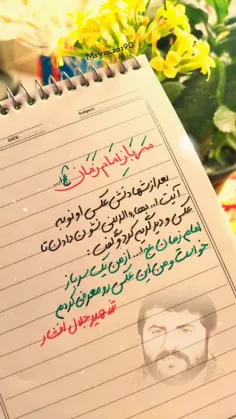 Mrymzar90
DATE:
Subject:
سرباز امام زمان عج...
بعد از شهادتش عکسی او رو به
آیت ا... بهاءالدینی نشون دادن تا
عکس و دید گریه کرد و گفت:
امام زمان عج... از من یک سرباز
خواست و من این عکس رو معرفی کردم
شهید جلال افشار